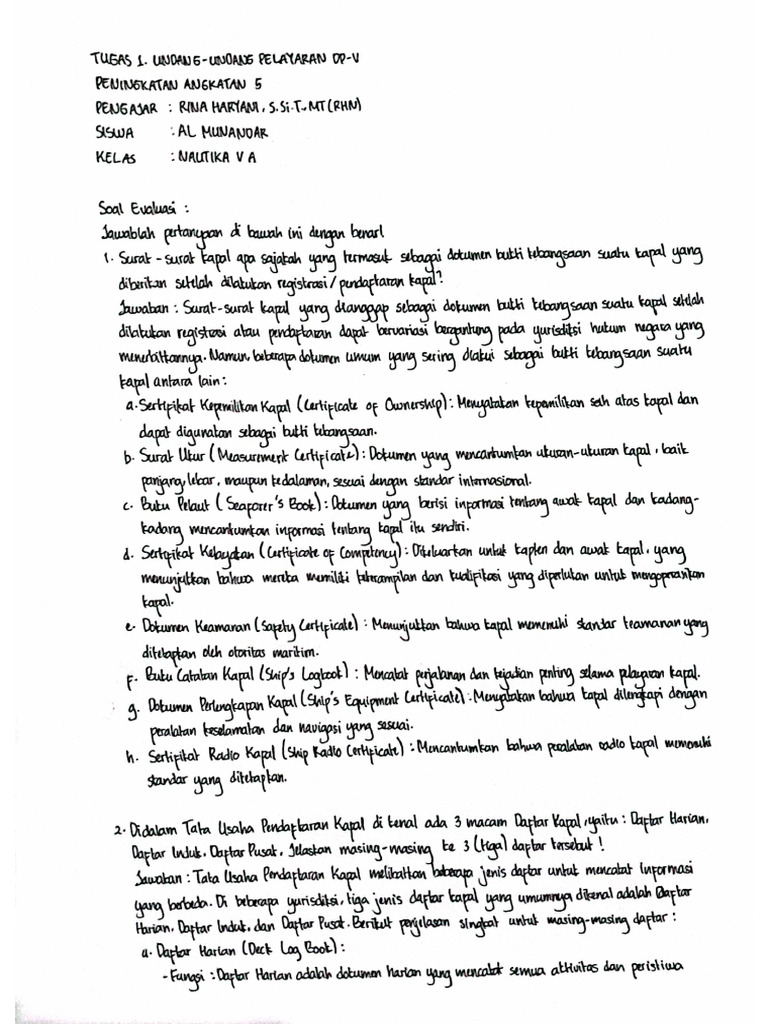 TUGAS 1. UNDANG-UNDANG PELAYARAN DP-V
PENINGKATAN ANGKATAN 5
PENGAJAR : RINA HARYANI, S.Si.T., MT (RHN)
SISWA : AL MUNANDAR
KELAS : NAUTIKA V A
Soal Evaluasi :
Jawablah pertanyaan di bawah ini dengan benar!
1. Surat - surat kapal apa sajakah yang termasuk sebagai dokumen bukti kebangsaan suatu kapal yang
diberikan setelah dilakukan registrasi / pendaftaran kapal?
Jawaban : Surat-surat kapal yang dianggap sebagai dokumen bukti kebangsaan suatu kapal setelah
dilakukan registrasi atau pendaftaran dapat bervariasi bergantung pada yurisdiksi hukum negara yang
menerbitkannya. Namun, beberapa dokumen umum yang sering diakui sebagai bukti kebangsaan suatu
kapal antara lain :
a. Sertifikat Kepemilikan Kapal (Certificate of Ownership) : Menyatakan kepemilikan sah atas kapal dan
dapat digunakan sebagai bukti kebangsaan.
b. Surat Ukur (Measurement Certificate) : Dokumen yang mencantumkan ukuran-ukuran kapal, baik
panjang, lebar, maupun kedalaman, sesuai dengan standar internasional.
c. Buku Pelaut (Seafarer's Book) : Dokumen yang berisi informasi tentang awak kapal dan kadang-
kadang mencantumkan informasi tentang kapal itu sendiri.
d. Sertifikat Kelayakan (Certificate of Competency) : Dikeluarkan untuk kapten dan awak kapal, yang
menunjukkan bahwa mereka memiliki keterampilan dan kualifikasi yang diperlukan untuk mengoperasikan
kapal.
e. Dokumen Keamanan (Safety Certificate) : Menunjukkan bahwa kapal memenuhi standar keamanan yang
ditetapkan oleh otoritas maritim.
f. Buku Catatan Kapal (Ship's Logbook) : Mencatat perjalanan dan kejadian penting selama pelayaran kapal.
g. Dokumen Perlengkapan Kapal (Ship's Equipment Certificate) : Menyatakan bahwa kapal dilengkapi dengan
peralatan keselamatan dan navigasi yang sesuai.
h. Sertifikat Radio Kapal (Ship Radio Certificate) : Mencantumkan bahwa peralatan radio kapal memenuhi
standar yang ditetapkan.
2. Didalam Tata Usaha Pendaftaran Kapal di kenal ada 3 macam Daftar Kapal, yaitu : Daftar Harian,
Daftar Induk, Daftar Pusat. Jelaskan masing-masing ke 3 (tiga) daftar tersebut !
Jawaban : Tata Usaha Pendaftaran Kapal melibatkan beberapa jenis daftar untuk mencatat informasi
yang berbeda. Di beberapa yurisdiksi, tiga jenis daftar kapal yang umumnya dikenal adalah Daftar
Harian, Daftar Induk, dan Daftar Pusat. Berikut penjelasan singkat untuk masing-masing daftar :
a. Daftar Harian (Deck Log Book) :
- Fungsi : Daftar Harian adalah dokumen harian yang mencatat semua aktivitas dan peristiwa